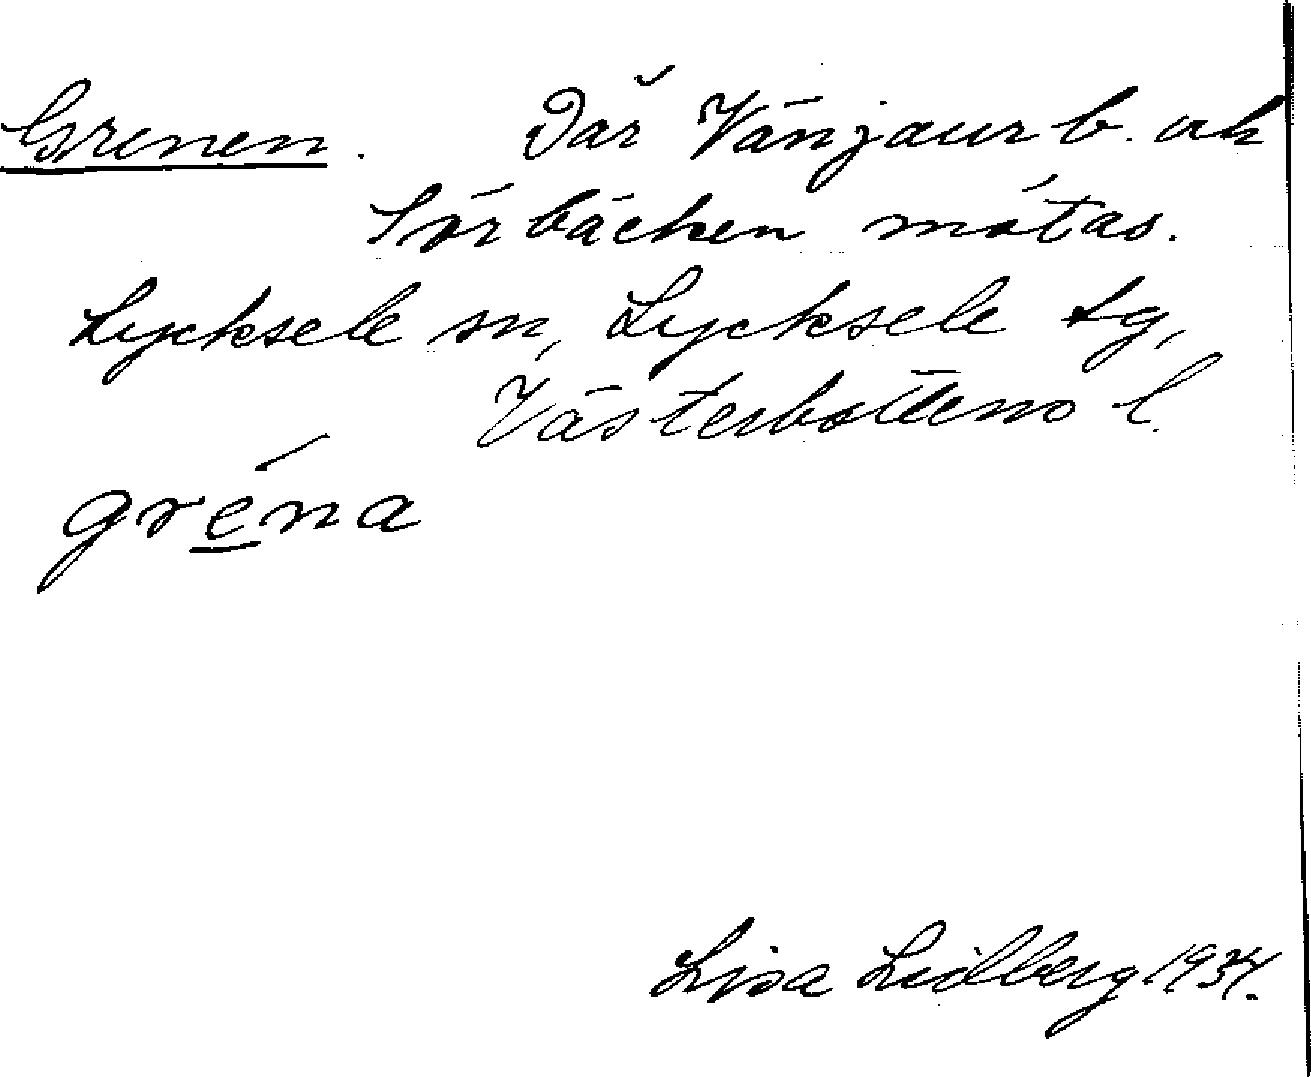 Grenen. Där Vänjaur b. och
Sörbäcken mötas.
Lycksele sn, Lycksele tg,
Västerbottens l.
gréna
Lisa Lidberg 1934.